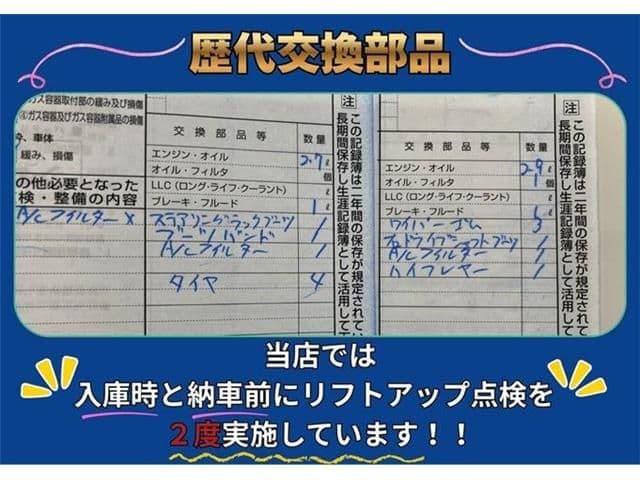 歴代交換部品
ガス容器取付部の緩み及び損傷
④ガス容器及びガス容器附属品の損傷
枠、車体
緩み、損傷
の他必要となった
検・整備の内容
A/Cフィルター ×
交換部品等 数量
エンジン・オイル 2.7 ℓ
オイル・フィルタ 個
LLC（ロング・ライフ・クーラント） ℓ
ブレーキ・フルード 1 ℓ
ステアリングラックブーツ 1
ブーツバンド 1
A/Cフィルター 1
タイヤ 4
注
この記録簿は二年間の保存が規定されてい
長期間保存し生涯記録簿として活用して下
交換部品等 数量
エンジン・オイル 2.9 ℓ
オイル・フィルタ 1 個
LLC（ロング・ライフ・クーラント） ℓ
ブレーキ・フルード ℓ
ワイパーゴム 3
右ドライブシャフトブーツ 1
A/Cフィルター 1
ハイフレヤー 1
注
この記録簿は二年間の保存が規定されて
長期間保存し生涯記録簿として活用し
当店では
入庫時と納車前にリフトアップ点検を
２度実施しています！！